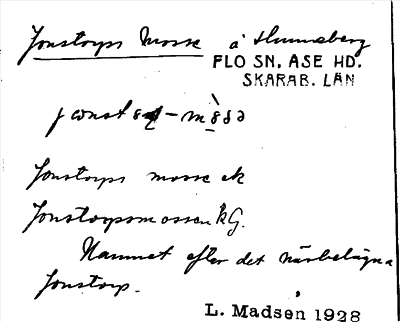 Jonstorps Mosse å Hunneberg
FLO SN. ÅSE HD.
SKARAB. LÄN
Jonstorps mosse ek
Jonstorpsmossen kG.
Namnet efter det närbelägna
Jonstorp.
L. Madsen 1928